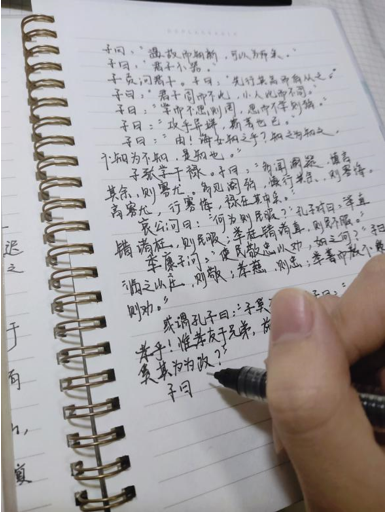 子曰：“温故而知新，可以为师矣。”
子曰：“君子不器。”
子贡问君子。子曰：“先行其言而后从之。”
子曰：“君子周而不比，小人比而不周。”
子曰：“学而不思则罔，思而不学则殆。”
子曰：“攻乎异端，斯害也已。”
子曰：“由！诲女知之乎？知之为知之，
不知为不知，是知也。”
子张学干禄。子曰：“多闻阙疑，慎言
其余，则寡尤。多见阙殆，慎行其余，则寡悔。
言寡尤，行寡悔，禄在其中矣。”
哀公问曰：“何为则民服？”孔子对曰：“举直
错诸枉，则民服；举枉错诸直，则民不服。”
季康子问：“使民敬忠以劝，如之何？”子曰
“临之以庄，则敬；孝慈，则忠；举善而教不能
则劝。”
或谓孔子曰：“子奚
孝乎！惟孝友于兄弟，施
奚其为为政？”
子曰
迟
之
于
有
复